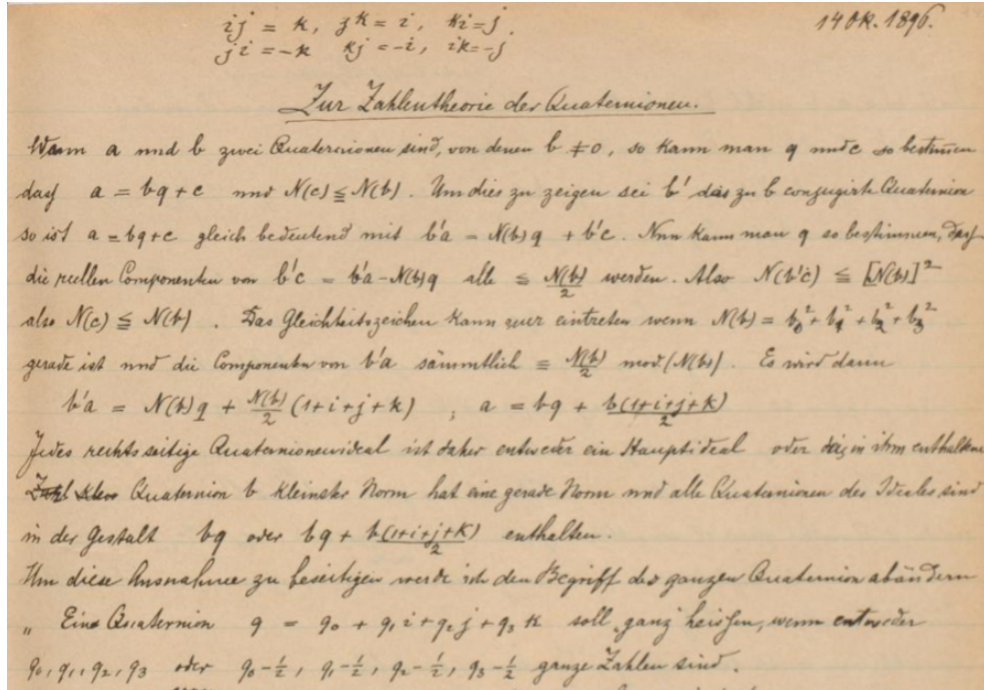 ij = k, jk = i, ki = j. 14 Ok. 1896.
ji = -k kj = -i, ik = -j
Zur Zahlentheorie der Quaternionen.
Wenn a und b zwei Quaternionen sind, von denen b ≠ 0, so kann man q und c so bestimmen
daß a = bq + c und N(c) ≦ N(b). Um dies zu zeigen sei b' das zu b conjugirte Quaternion
so ist a = bq + c gleich bedeutend mit b'a = N(b)q + b'c. Nun kann man q so bestimmen, daß
die reellen Componenten von b'c = b'a - N(b)q alle ≦ N(b)/2 werden. Also N(b'c) ≦ [N(b)]²
also N(c) ≦ N(b). Das Gleichheitszeichen kann nur eintreten wenn N(b) = b₀² + b₁² + b₂² + b₃²
gerade ist und die Componenten von b'a sämmtlich ≡ N(b)/2 mod. (N(b)). Es wird dann
b'a = N(b)q + N(b)/2 (1+i+j+k) ; a = bq + b(1+i+j+k)/2
Jedes rechtsseitige Quaternionenideal ist daher entweder ein Hauptideal oder die in ihm enthaltene
Quaternion b kleinster Norm hat eine gerade Norm und alle Quaternionen des Ideales sind
in der Gestalt bq oder bq + b(1+i+j+k)/2 enthalten.
Um diese Ausnahme zu beseitigen werde ich den Begriff der ganzen Quaternion abändern
„ Eine Quaternion q = q₀ + q₁i + q₂j + q₃k soll „ganz" heißen, wenn entweder
q₀, q₁, q₂, q₃ oder q₀-½, q₁-½, q₂-½, q₃-½ ganze Zahlen sind.